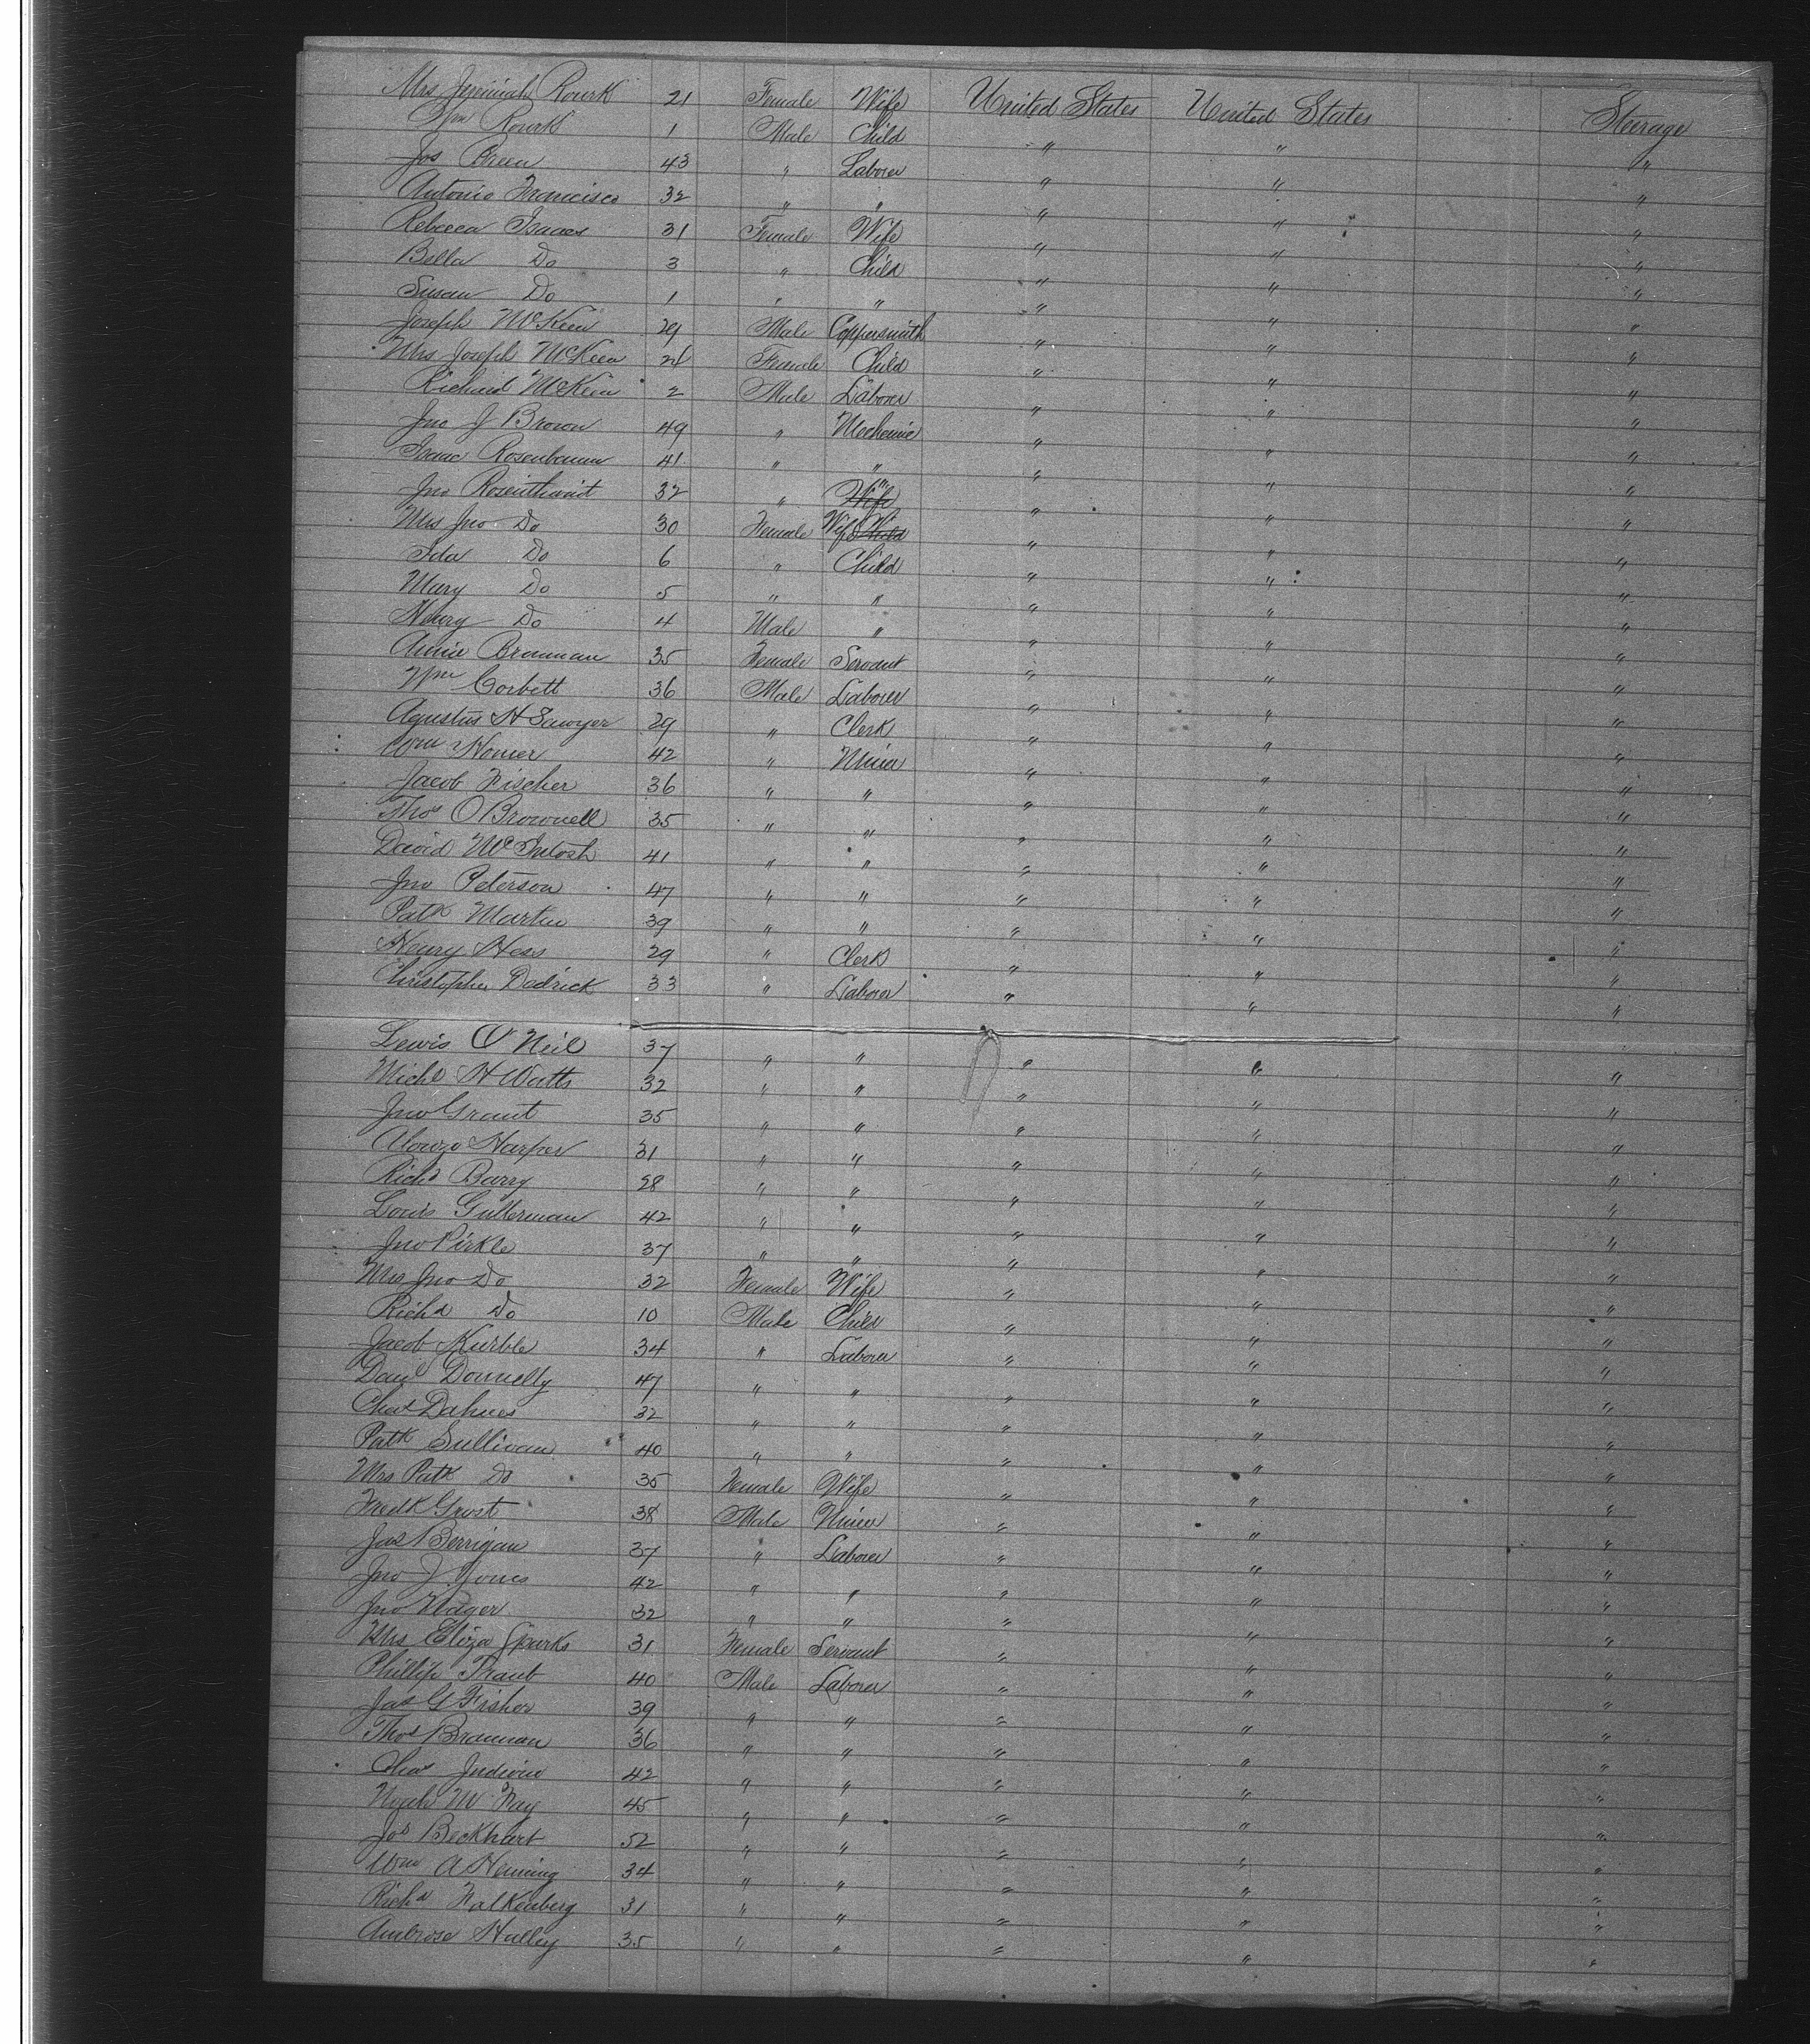 Mrs Jeremiah Rourk 21 Female Wife United States United States Steerage
Wm Rourk 1 Male Child " " "
Jos Breen 43 " Laborer " " "
Antonio Francisco 32 " " " " "
Rebecca Isaacs 31 Female Wife " " "
Bella Do 3 " Child " " "
Susan Do 1 " " " " "
Joseph McKeen 29 Male Coppersmith " " "
Mrs Joseph McKeen 24 Female Child " " "
Richard McKeen 2 Male Laborer " " "
Jno J Brown 49 " Mechanic " " "
Isaac Rosenbaum 41 " " " " "
Jno 32 " Wife " " "
Mrs Jno Do 30 Female Wife Child " " "
Ida Do 6 " Child " " "
Mary Do 5 " " " " "
Henry Do 4 Male " " " "
Annie Brannan 35 Female Servant " " "
Wm Corbett 36 Male Laborer " " "
Agustus H Sawyer 29 " Clerk " " "
Wm Homer 42 " Miner " " "
Jacob Fischer 36 " " " " "
Thos O Brownell 35 " " " " "
David McIntosh 41 " " " " "
Jno Peterson 47 " " " " "
Patk Martin 39 " " " " "
Henry Hess 29 " Clerk " " "
Christopher Dedrick 33 " Laborer " " "
Lewis O Neil 37 " " " " "
Michl H Watts 32 " " " " "
Jno Grant 35 " " " " "
Alonzo Harper 31 " " " " "
Richd Barry 28 " " " " "
Louis Gutterman 42 " " " " "
Jno Pirkle 37 " " " " "
Mrs Jno Do 32 Female Wife " " "
Richd Do 10 Male Child " " "
Jacob Kurble 34 " Laborer " " "
Danl Donnelly 47 " " " " "
Chas Dahnes 32 " " " " "
Patk Sullivan 40 " " " " "
Mrs Patk Do 35 Female Wife " " "
Fredk Grost 38 Male Miner " " "
Jas Berrigan 37 " Laborer " " "
Jno J Jones 42 " " " " "
Jno Mager 32 " " " " "
Mrs Eliza Sparks 31 Female Servant " " "
Phillip Traub 40 Male Laborer " " "
Jas G Fisher 39 " " " " "
Thos Brannan 36 " " " " "
Chas 42 " " " " "
Noah M Fay 45 " " " " "
Jos Beckhart 52 " " " " "
Wm A Henning 34 " " " " "
Richd Falkenberg 31 " " " " "
Ambrose Hulley 35 " " " " "